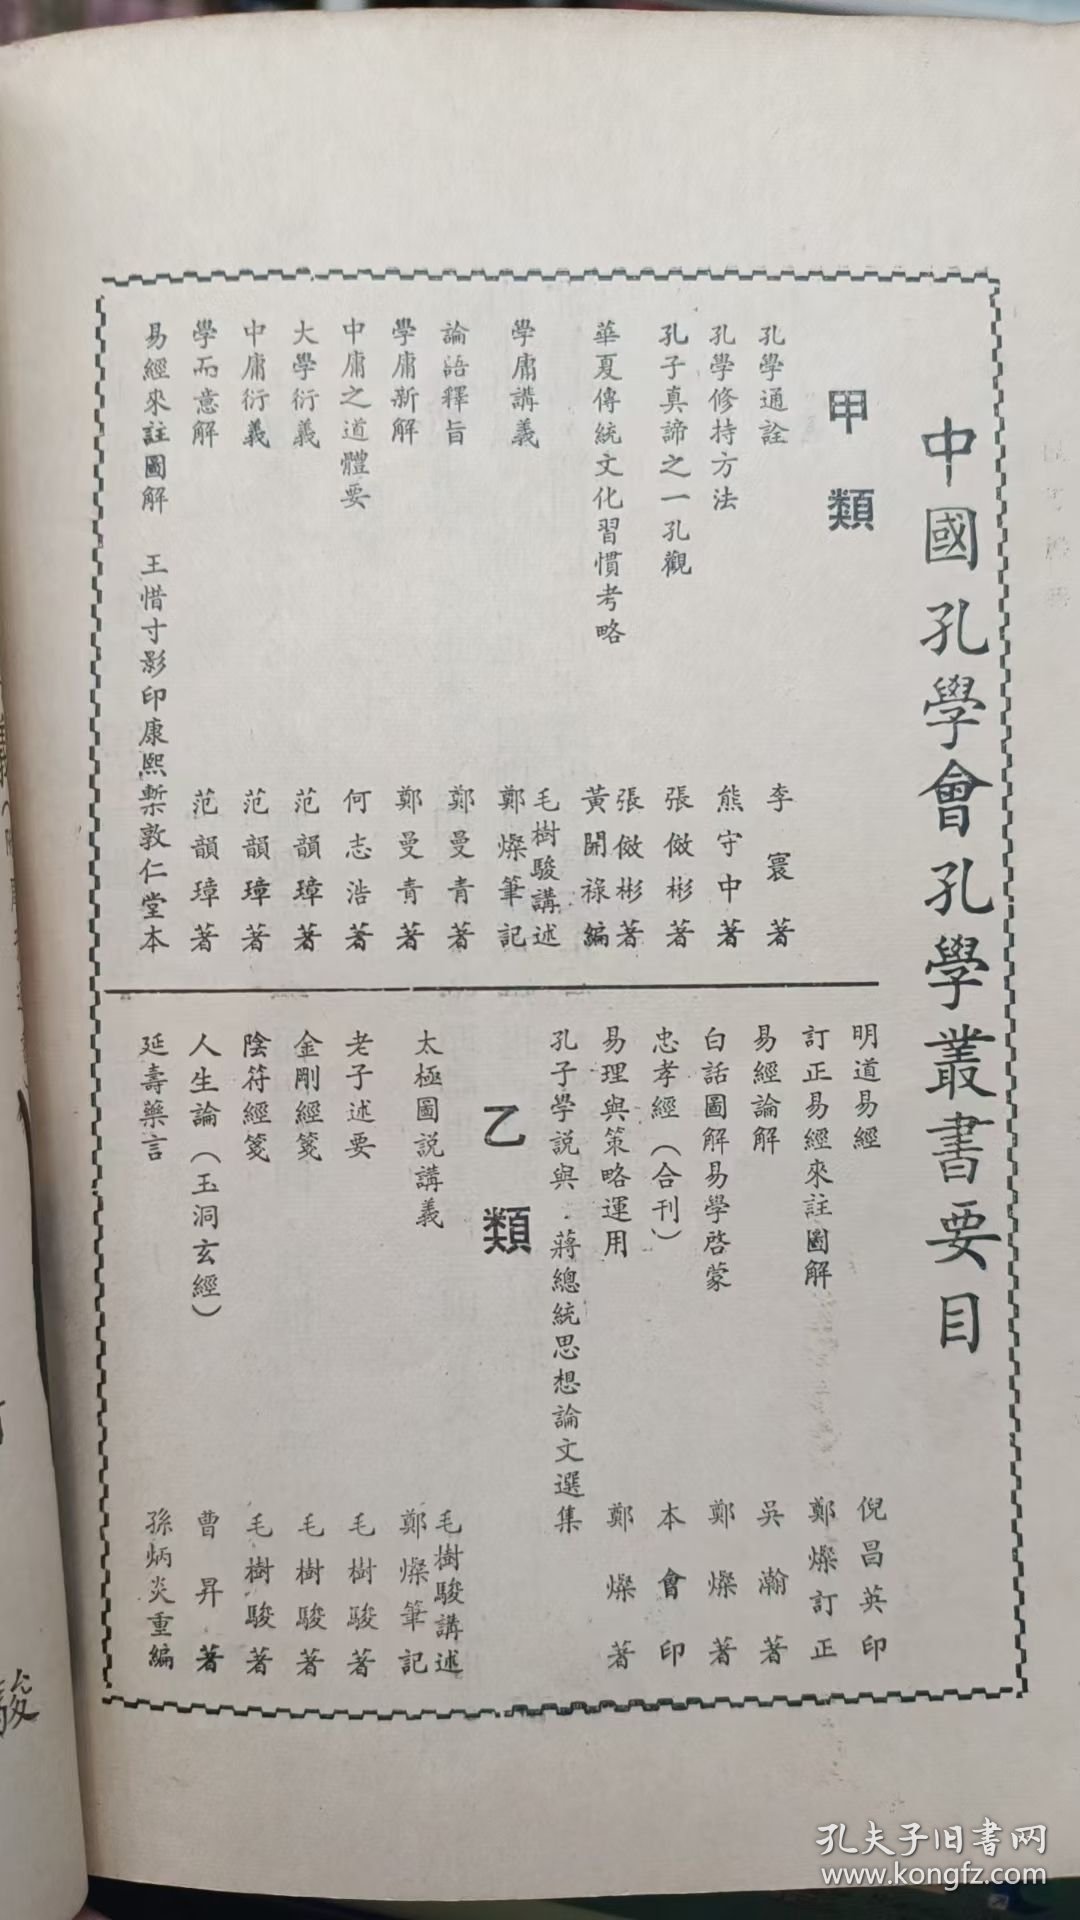 中國孔學會孔學叢書要目
甲類
孔學通詮 李寰著
孔學修持方法 熊守中著
孔子真諦之一孔觀 張儆彬著
華夏傳統文化習慣考略 張儆彬著 黃開祿編
學庸講義 毛樹駿講述 鄭燦筆記
論語釋旨 鄭曼青著
學庸新解 鄭曼青著
中庸之道體要 何志浩著
大學衍義 范韻璋著
中庸衍義 范韻璋著
學而意解 范韻璋著
易經來註圖解 王惜寸影印康熙槧敦仁堂本
明道易經 倪昌英印
訂正易經來註圖解 鄭燦訂正
易經論解 吳瀚著
白話圖解易學啓蒙 鄭燦著
忠孝經（合刊） 本會印
易理與策略運用 鄭燦著
孔子學説與 蔣總統思想論文選集
乙類
太極圖説講義 毛樹駿講述 鄭燦筆記
老子述要 毛樹駿著
金剛經箋 毛樹駿著
陰符經箋 毛樹駿著
人生論（玉洞玄經） 曹昇著
延壽藥言 孫炳炎重編
駿
孔夫子旧書网
www.kongfz.com